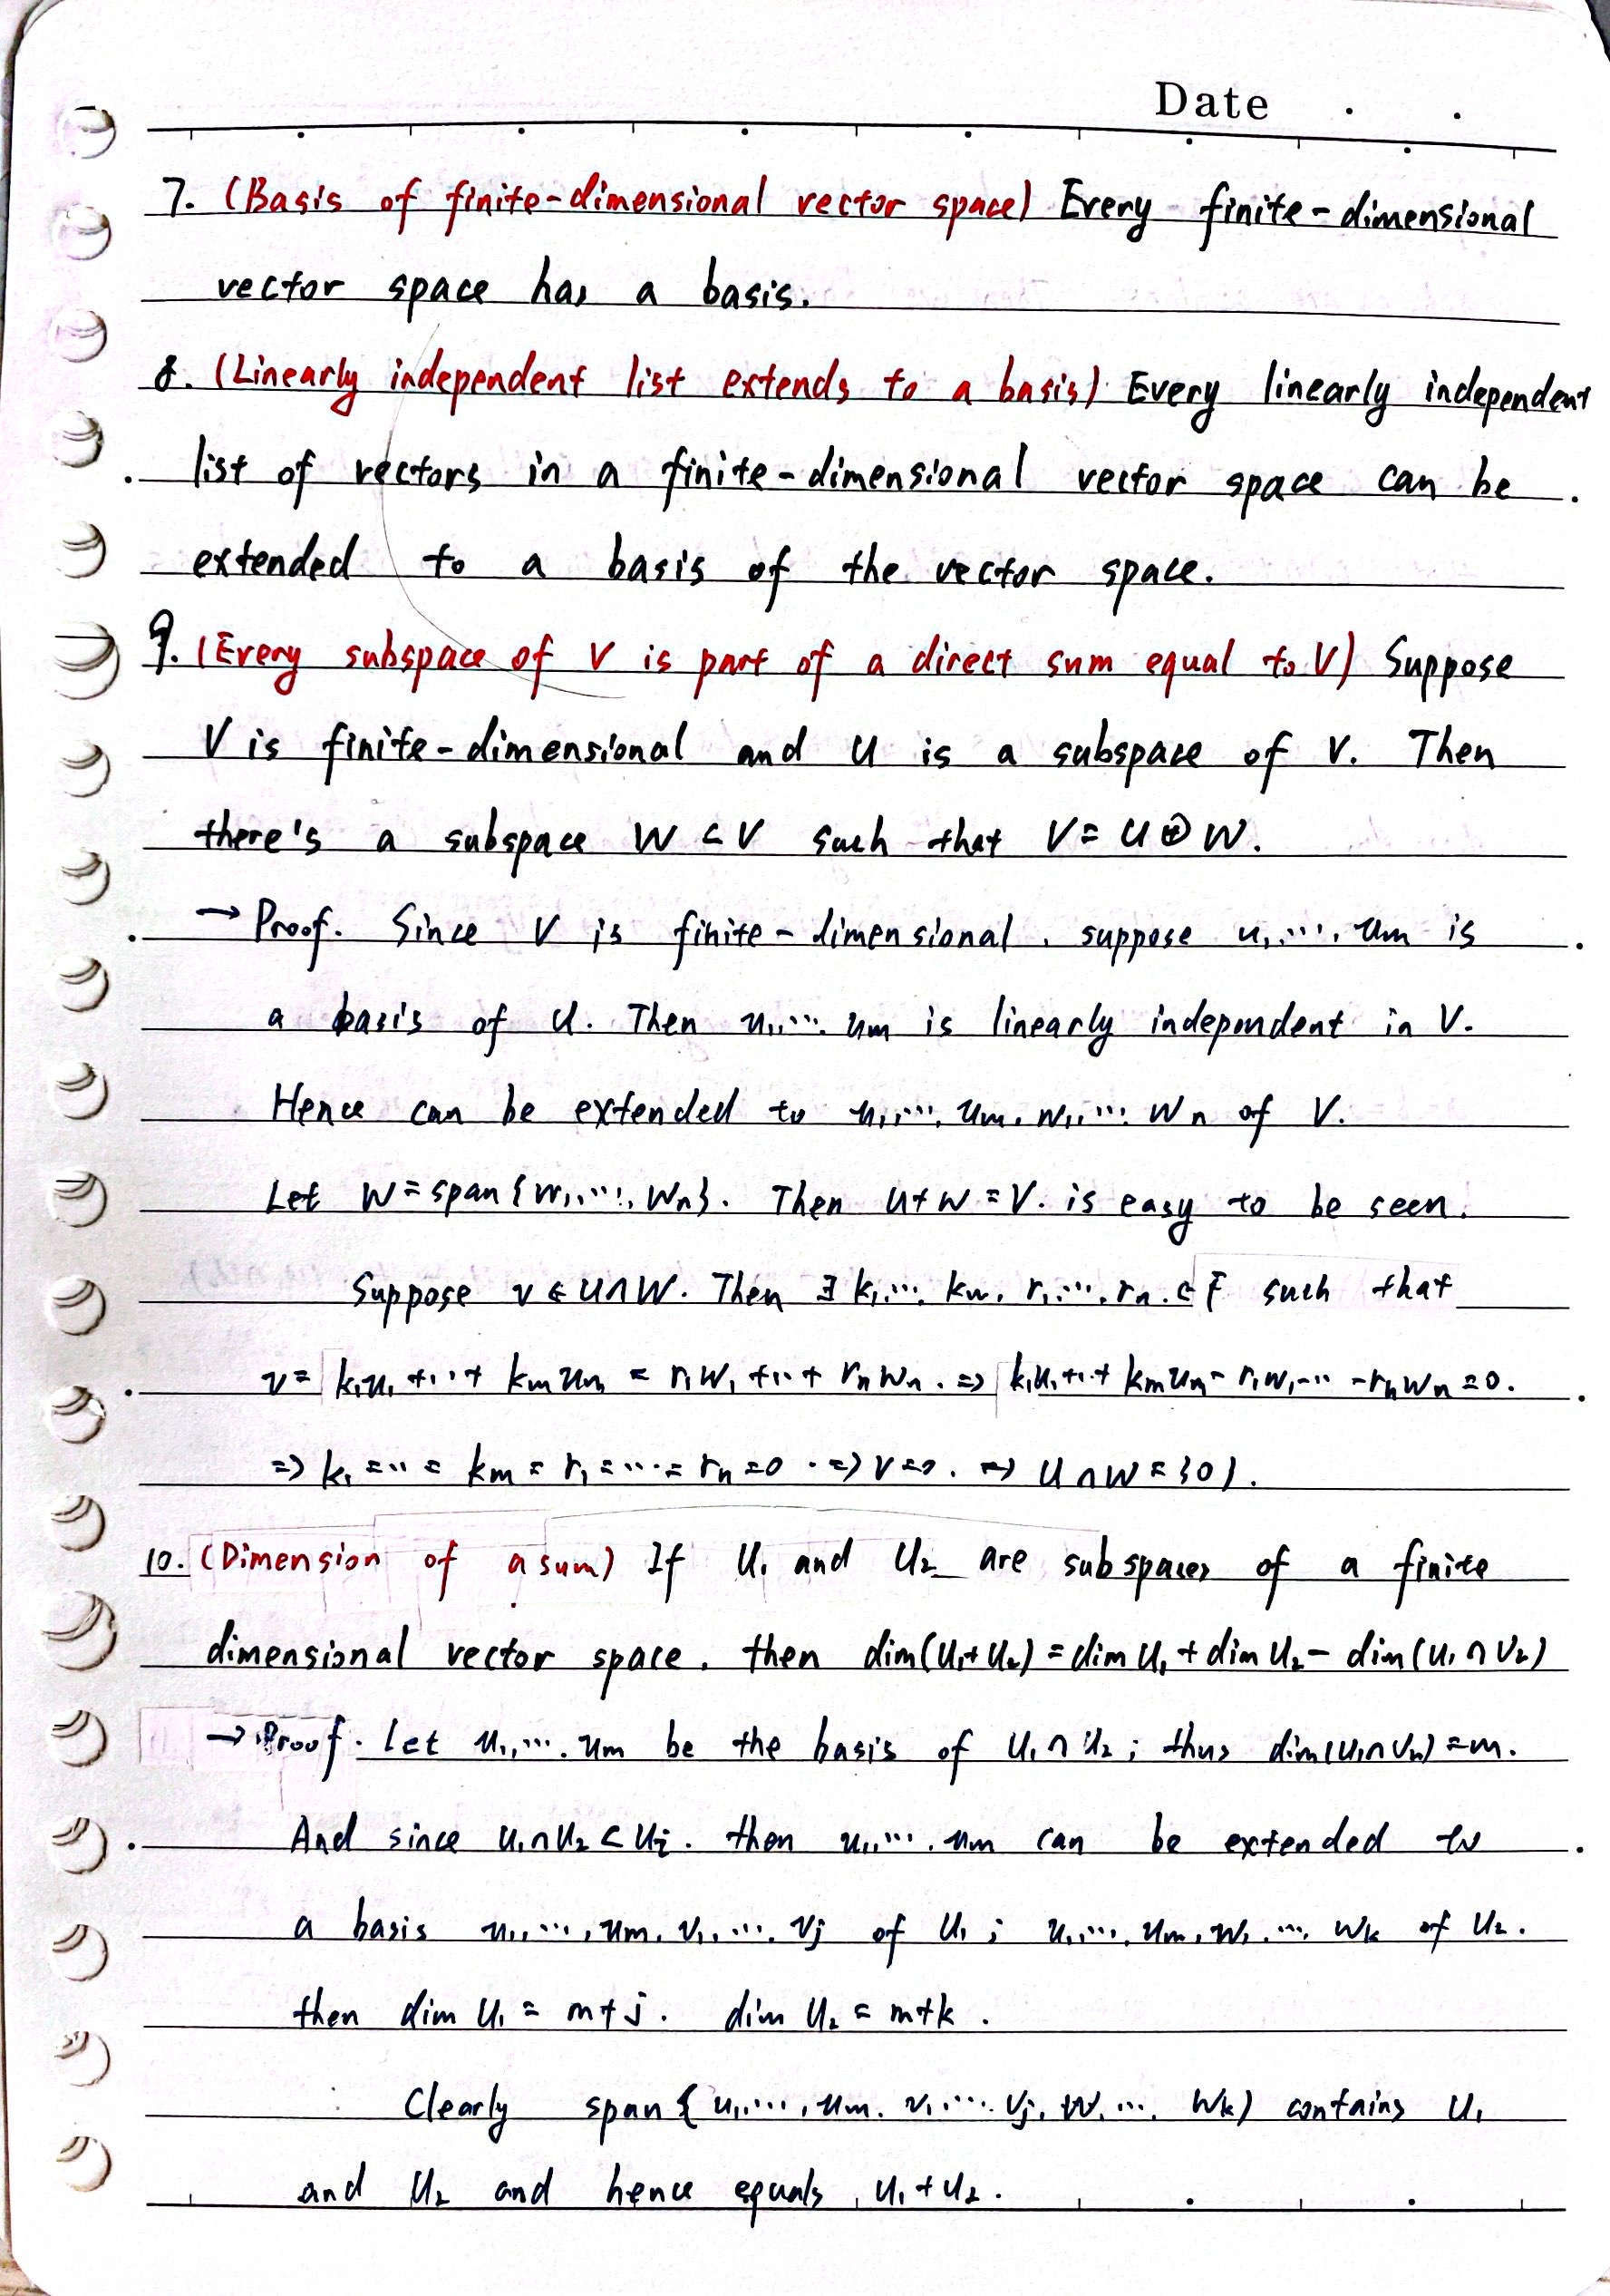 Date . .
7. (Basis of finite-dimensional vector space) Every finite-dimensional
vector space has a basis.
8. (Linearly independent list extends to a basis) Every linearly independent
list of vectors in a finite-dimensional vector space can be
extended to a basis of the vector space.
9. (Every subspace of V is part of a direct sum equal to V) Suppose
V is finite-dimensional and U is a subspace of V. Then
there's a subspace W ⊂ V such that V = U ⊕ W.
→ Proof. Since V is finite-dimensional, suppose u₁, ..., uₘ is
a basis of U. Then u₁, ..., uₘ is linearly independent in V.
Hence can be extended to u₁, ..., uₘ, w₁, ..., wₙ of V.
Let W = span{w₁, ..., wₙ}. Then U+W = V. is easy to be seen.
Suppose v ∈ U∩W. Then ∃ k₁, ..., kₘ, r₁, ..., rₙ ∈ F such that
v = k₁u₁ + ... + kₘuₘ = r₁w₁ + ... + rₙwₙ. ⇒ k₁u₁ + ... + kₘuₘ - r₁w₁ - ... - rₙwₙ = 0.
⇒ k₁ = ... = kₘ = r₁ = ... = rₙ = 0. ⇒ v = 0. ⇒ U∩W = {0}.
10. (Dimension of a sum) If U₁ and U₂ are subspaces of a finite
dimensional vector space, then dim(U₁+U₂) = dim U₁ + dim U₂ - dim(U₁∩U₂)
→ Proof. Let u₁, ..., uₘ be the basis of U₁∩U₂; thus dim(U₁∩U₂) = m.
And since U₁∩U₂ ⊂ Uᵢ. then u₁, ..., uₘ can be extended to
a basis u₁, ..., uₘ, v₁, ..., vⱼ of U₁; u₁, ..., uₘ, w₁, ..., wₖ of U₂.
then dim U₁ = m+j. dim U₂ = m+k.
Clearly span{u₁, ..., uₘ, v₁, ..., vⱼ, w₁, ..., wₖ} contains U₁
and U₂ and hence equals U₁+U₂.